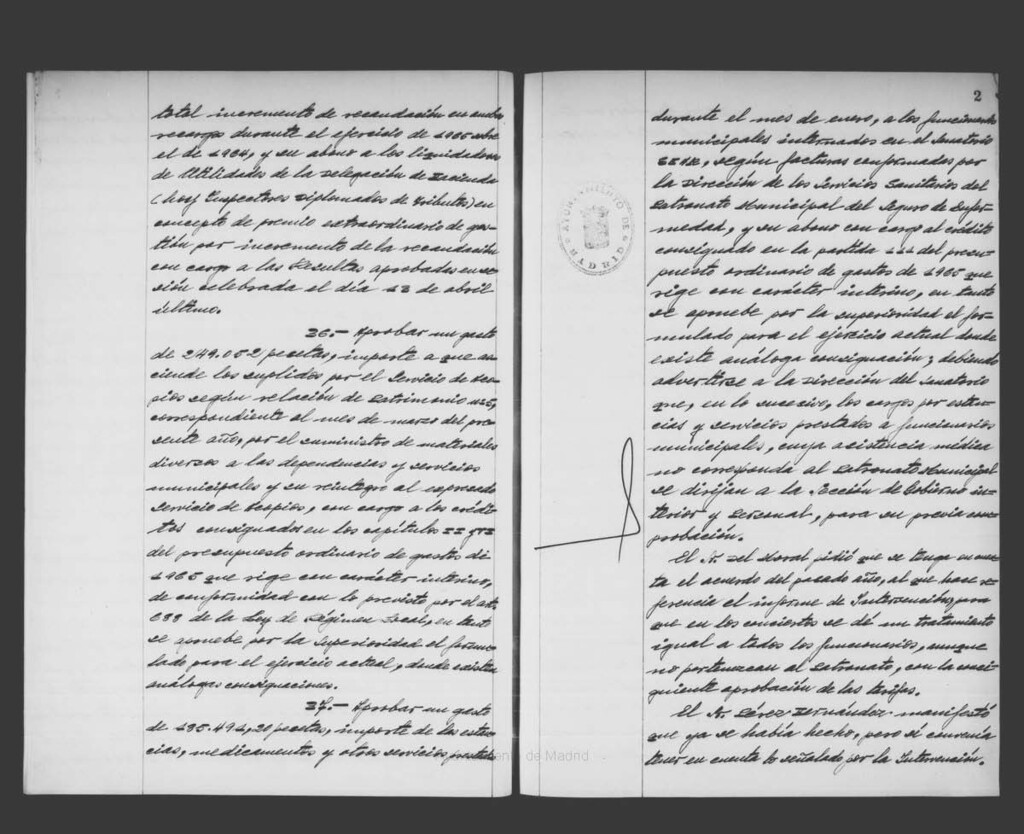 total incremento de recaudación en ambos
recargo durante el ejercicio de 1965 sobre
el de 1964, y su abono a los liquidadores
de Utilidades de la Delegación de Hacienda
(hoy Inspectores Diplomados de Tributos) en
concepto de premio extraordinario de ges-
tión por incremento de la recaudación
con cargo a las Resultas aprobadas en se-
sión celebrada el día 13 de abril
último.
26.- Aprobar un gasto
de 249.052 pesetas, importe a que as-
ciende los suplidos por el Servicio de Aco-
pios según relación de Patrimonio
correspondiente al mes de marzo del pre-
sente año, por el suministro de materiales
diversos a las dependencias y servicios
municipales y su reintegro al expresado
Servicio de Acopios, con cargo a los crédi-
tos consignados en los capítulos
del presupuesto ordinario de gastos de
1965 que rige con carácter interino,
de conformidad con lo previsto por el art.
688 de la Ley de Régimen Local, en tanto
se apruebe por la Superioridad el formu-
lado para el ejercicio actual, donde existen
análogas consignaciones.
27.- Aprobar un gasto
de 135.494,20 pesetas, importe de las estan-
cias, medicamentos y otros servicios prestados
2
durante el mes de enero, a los funcionarios
municipales internados en el Sanatorio
según facturas conformadas por
la Dirección de los Servicios Sanitarios del
Patronato Municipal del Seguro de Enfer-
medad, y su abono con cargo al crédito
consignado en la partida 111 del presu-
puesto ordinario de gastos de 1965 que
rige con carácter interino, en tanto
se apruebe por la superioridad el for-
mulado para el ejercicio actual donde
existe análoga consignación; debiendo
advertirse a la Dirección del Sanatorio
que, en lo sucesivo, los cargos por estan-
cias y servicios prestados a funcionarios
municipales, cuya asistencia médica
no corresponda al Patronato Municipal
se dirijan a la Sección de Gobierno in-
terior y Personal, para su previa com-
probación.
El Sr. Del Moral pidió que se tenga en cuen-
ta el acuerdo del pasado año, al que hace re-
ferencia el informe de Intervención, para
que en los conciertos se dé un tratamiento
igual a todos los funcionarios, aunque
no pertenezcan al Patronato, con la consi-
guiente aprobación de las tarifas.
El Sr. Pérez Hernández manifestó
que ya se había hecho, pero si convenía
tener en cuenta lo señalado por la Intervención.
AYUNTAMIENTO DE MADRID
de Madrid